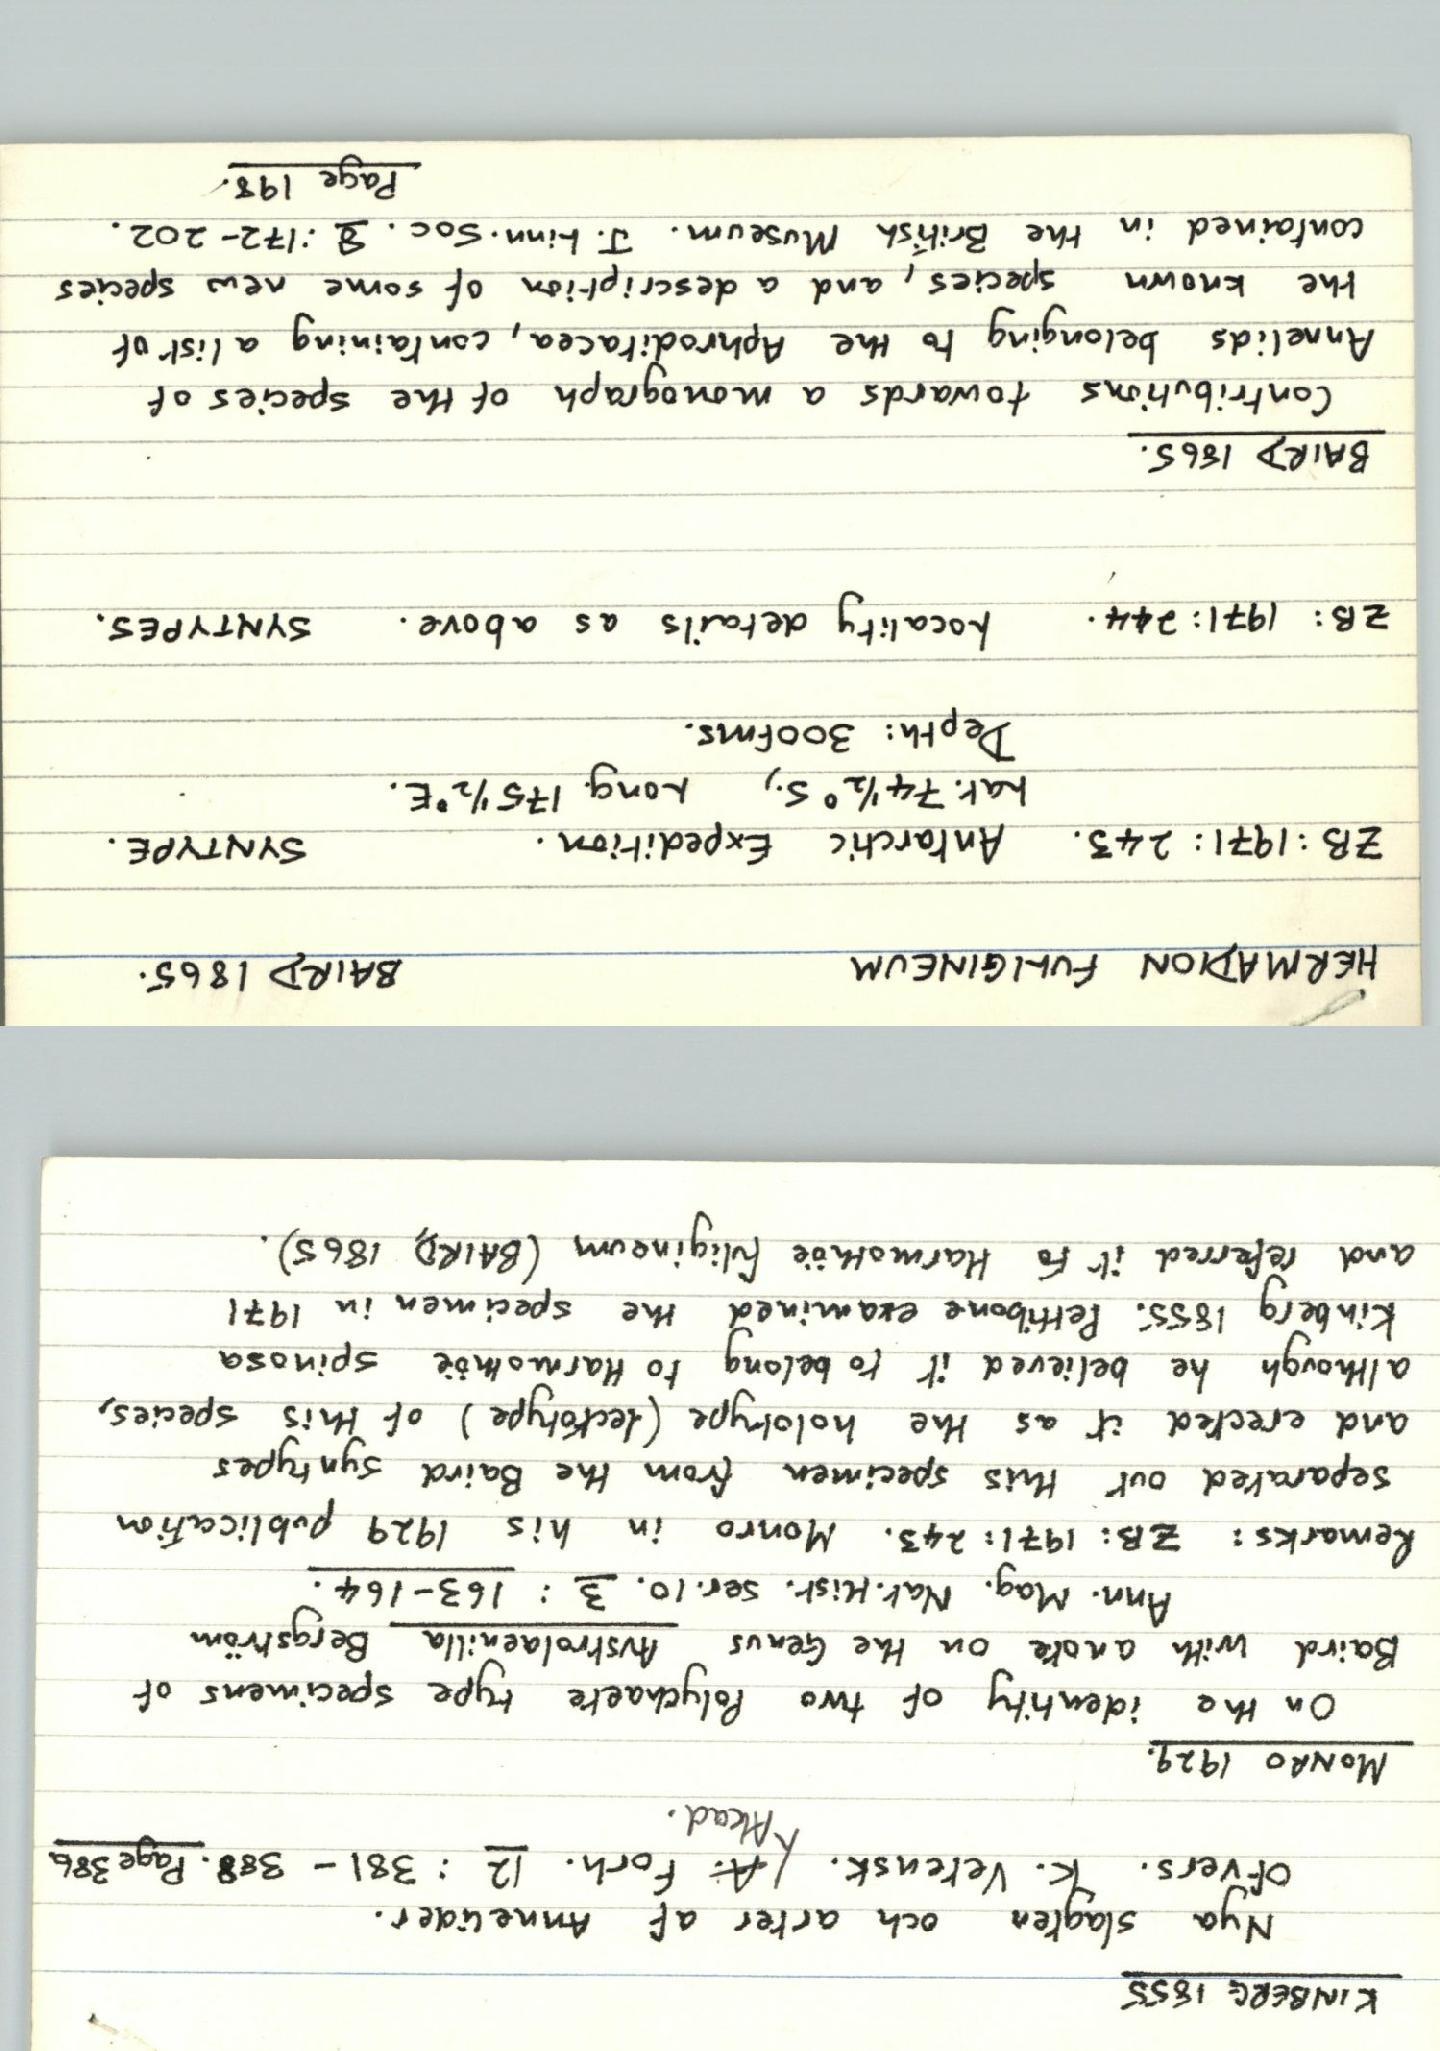 KINBERG 1855
Nya slagten och arter af Annelider.
Ofvers. K. Vetensk. A. Forh. 12 : 381 - 388. Page 386
Akad.
MONRO 1929.
On the identity of two Polychaete type specimens of
Baird with a note on the Genus Austrolaenilla Bergström
Ann. Mag. Nat. Hist. ser. 10. 3 : 163-164.
Remarks: ZB: 1971: 243. Monro in his 1929 publication
separated out this specimen from the Baird syntypes
and erected it as the holotype (lectotype) of this species,
although he believed it to belong to Harmothöe spinosa
Kinberg 1855. Pettibone examined the specimen in 1971
and referred it to Harmothöe fuligineum (BAIRD, 1865).
HERMADION FULIGINEUM BAIRD 1865.
ZB: 1971: 243. Antarctic Expedition. SYNTYPE.
Lat. 74 1/2° S., Long. 175 1/2° E.
Depth: 300fms.
ZB: 1971: 244. Locality details as above. SYNTYPES.
BAIRD 1865.
Contributions towards a monograph of the species of
Annelids belonging to the Aphroditacea, containing a list of
the known species, and a description of some new species
contained in the British Museum. J. Linn. Soc. 8 : 172-202.
Page 198.